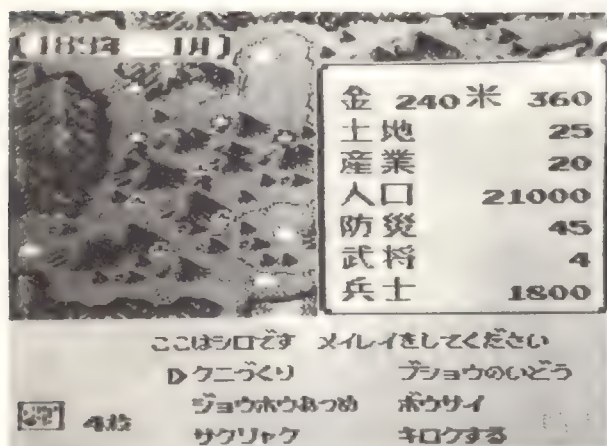 1月]
金 240 米 360
土地 25
産業 20
人口 21000
防災 45
武将 4
兵士 1800
ここはシロです メイレイをしてください
▷クニづくり ブショウのいどう
ジョウホウあつめ ボウサイ
4枚
サクリャク キロクする